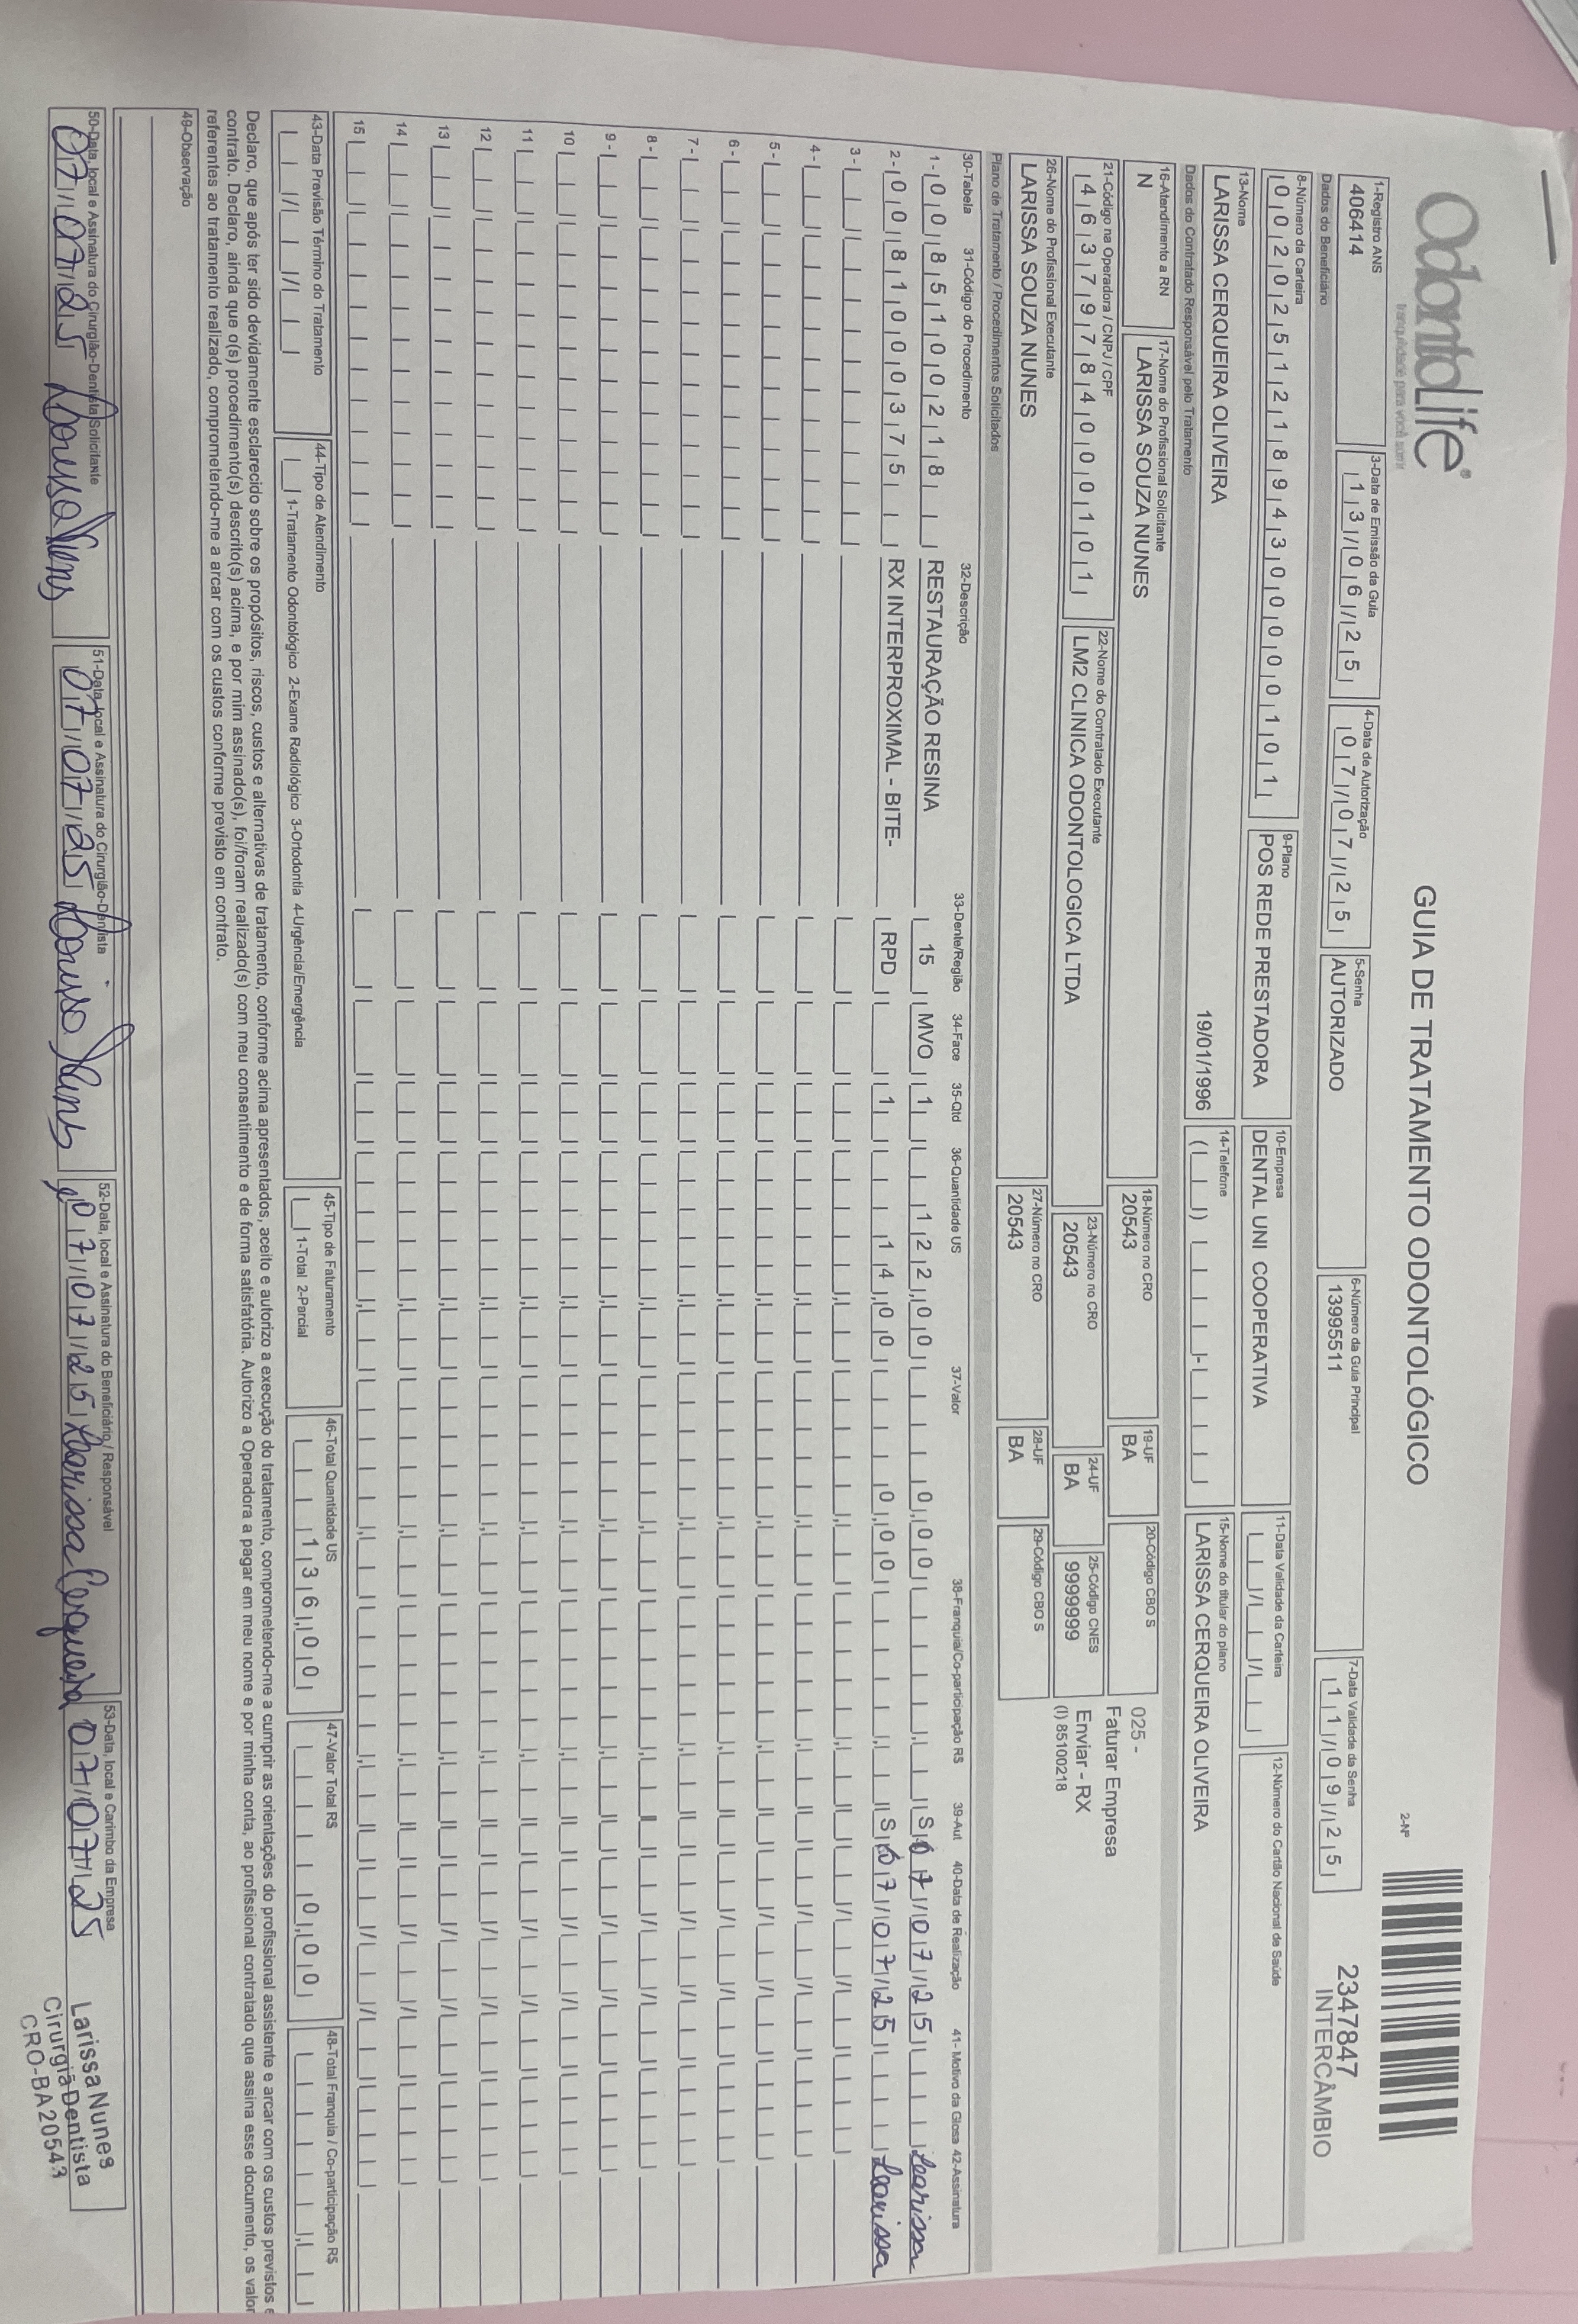 OdontoLife®
tranquilidade para você sorrir
GUIA DE TRATAMENTO ODONTOLÓGICO
2-Nº
2347847
INTERCÂMBIO
1-Registro ANS
406414
3-Data de Emissão da Guia
13/06/25
4-Data de Autorização
07/07/25
5-Senha
AUTORIZADO
6-Número da Guia Principal
13995511
7-Data Validade da Senha
11/09/25
Dados do Beneficiário
8-Número da Carteira
00202512189430000101
9-Plano
POS REDE PRESTADORA
10-Empresa
DENTAL UNI COOPERATIVA
11-Data Validade da Carteira
12-Número do Cartão Nacional de Saúde
13-Nome
LARISSA CERQUEIRA OLIVEIRA 19/01/1996
14-Telefone
15-Nome do titular do plano
LARISSA CERQUEIRA OLIVEIRA
Dados do Contratado Responsável pelo Tratamento
16-Atendimento a RN
N
17-Nome do Profissional Solicitante
LARISSA SOUZA NUNES
18-Número no CRO
20543
19-UF
BA
20-Código CBO S
025 -
Faturar Empresa
Enviar - RX
(I) 85100218
21-Código na Operadora / CNPJ / CPF
46379784000101
22-Nome do Contratado Executante
LM2 CLINICA ODONTOLOGICA LTDA
23-Número no CRO
20543
24-UF
BA
25-Código CNES
9999999
26-Nome do Profissional Executante
LARISSA SOUZA NUNES
27-Número no CRO
20543
28-UF
BA
29-Código CBO S
Plano de Tratamento / Procedimentos Solicitados
30-Tabela 31-Código do Procedimento 32-Descrição 33-Dente/Região 34-Face 35-Qtd 36-Quantidade US 37-Valor 38-Franquia/Co-participação R$ 39-Aut 40-Data de Realização 41- Motivo da Glosa 42-Assinatura
1- 00 85100218 RESTAURAÇÃO RESINA 15 MVO 1 122,00 0,00 S 07/07/25 Larissa
2- 00 81000375 RX INTERPROXIMAL - BITE- RPD 1 14,00 0,00 S 07/07/25 Larissa
3-
4-
5-
6-
7-
8-
9-
10
11
12
13
14
15
43-Data Previsão Término do Tratamento
44-Tipo de Atendimento
1-Tratamento Odontológico 2-Exame Radiológico 3-Ortodontia 4-Urgência/Emergência
45-Tipo de Faturamento
1-Total 2-Parcial
46-Total Quantidade US
136,00
47-Valor Total R$
0,00
48-Total Franquia / Co-participação R$
Declaro, que após ter sido devidamente esclarecido sobre os propósitos, riscos, custos e alternativas de tratamento, conforme acima apresentados, aceito e autorizo a execução do tratamento, comprometendo-me a cumprir as orientações do profissional assistente e arcar com os custos previstos e
contrato. Declaro, ainda que o(s) procedimento(s) descrito(s) acima, e por mim assinado(s), foi/foram realizado(s) com meu consentimento e de forma satisfatória. Autorizo a Operadora a pagar em meu nome e por minha conta, ao profissional contratado que assina esse documento, os valor
referentes ao tratamento realizado, comprometendo-me a arcar com os custos conforme previsto em contrato.
49-Observação
50-Data, local e Assinatura do Cirurgião-Dentista Solicitante
07/07/25 Larissa Nunes
51-Data, local e Assinatura do Cirurgião-Dentista
07/07/25 Larissa Nunes
52-Data, local e Assinatura do Beneficiário / Responsável
07/07/25 Larissa Cerqueira
53-Data, local e Carimbo da Empresa
07/07/25
Larissa Nunes
Cirurgiã Dentista
CRO-BA 20543